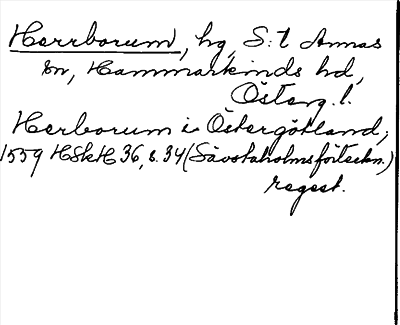 Herrborum, hg, S:t Annas
sn, Hammarkinds hd,
Österg. l.
Herborum i Östergötland,
1559 HSkH 36, s. 34 (Sävstaholmsförteckn.)
regest.